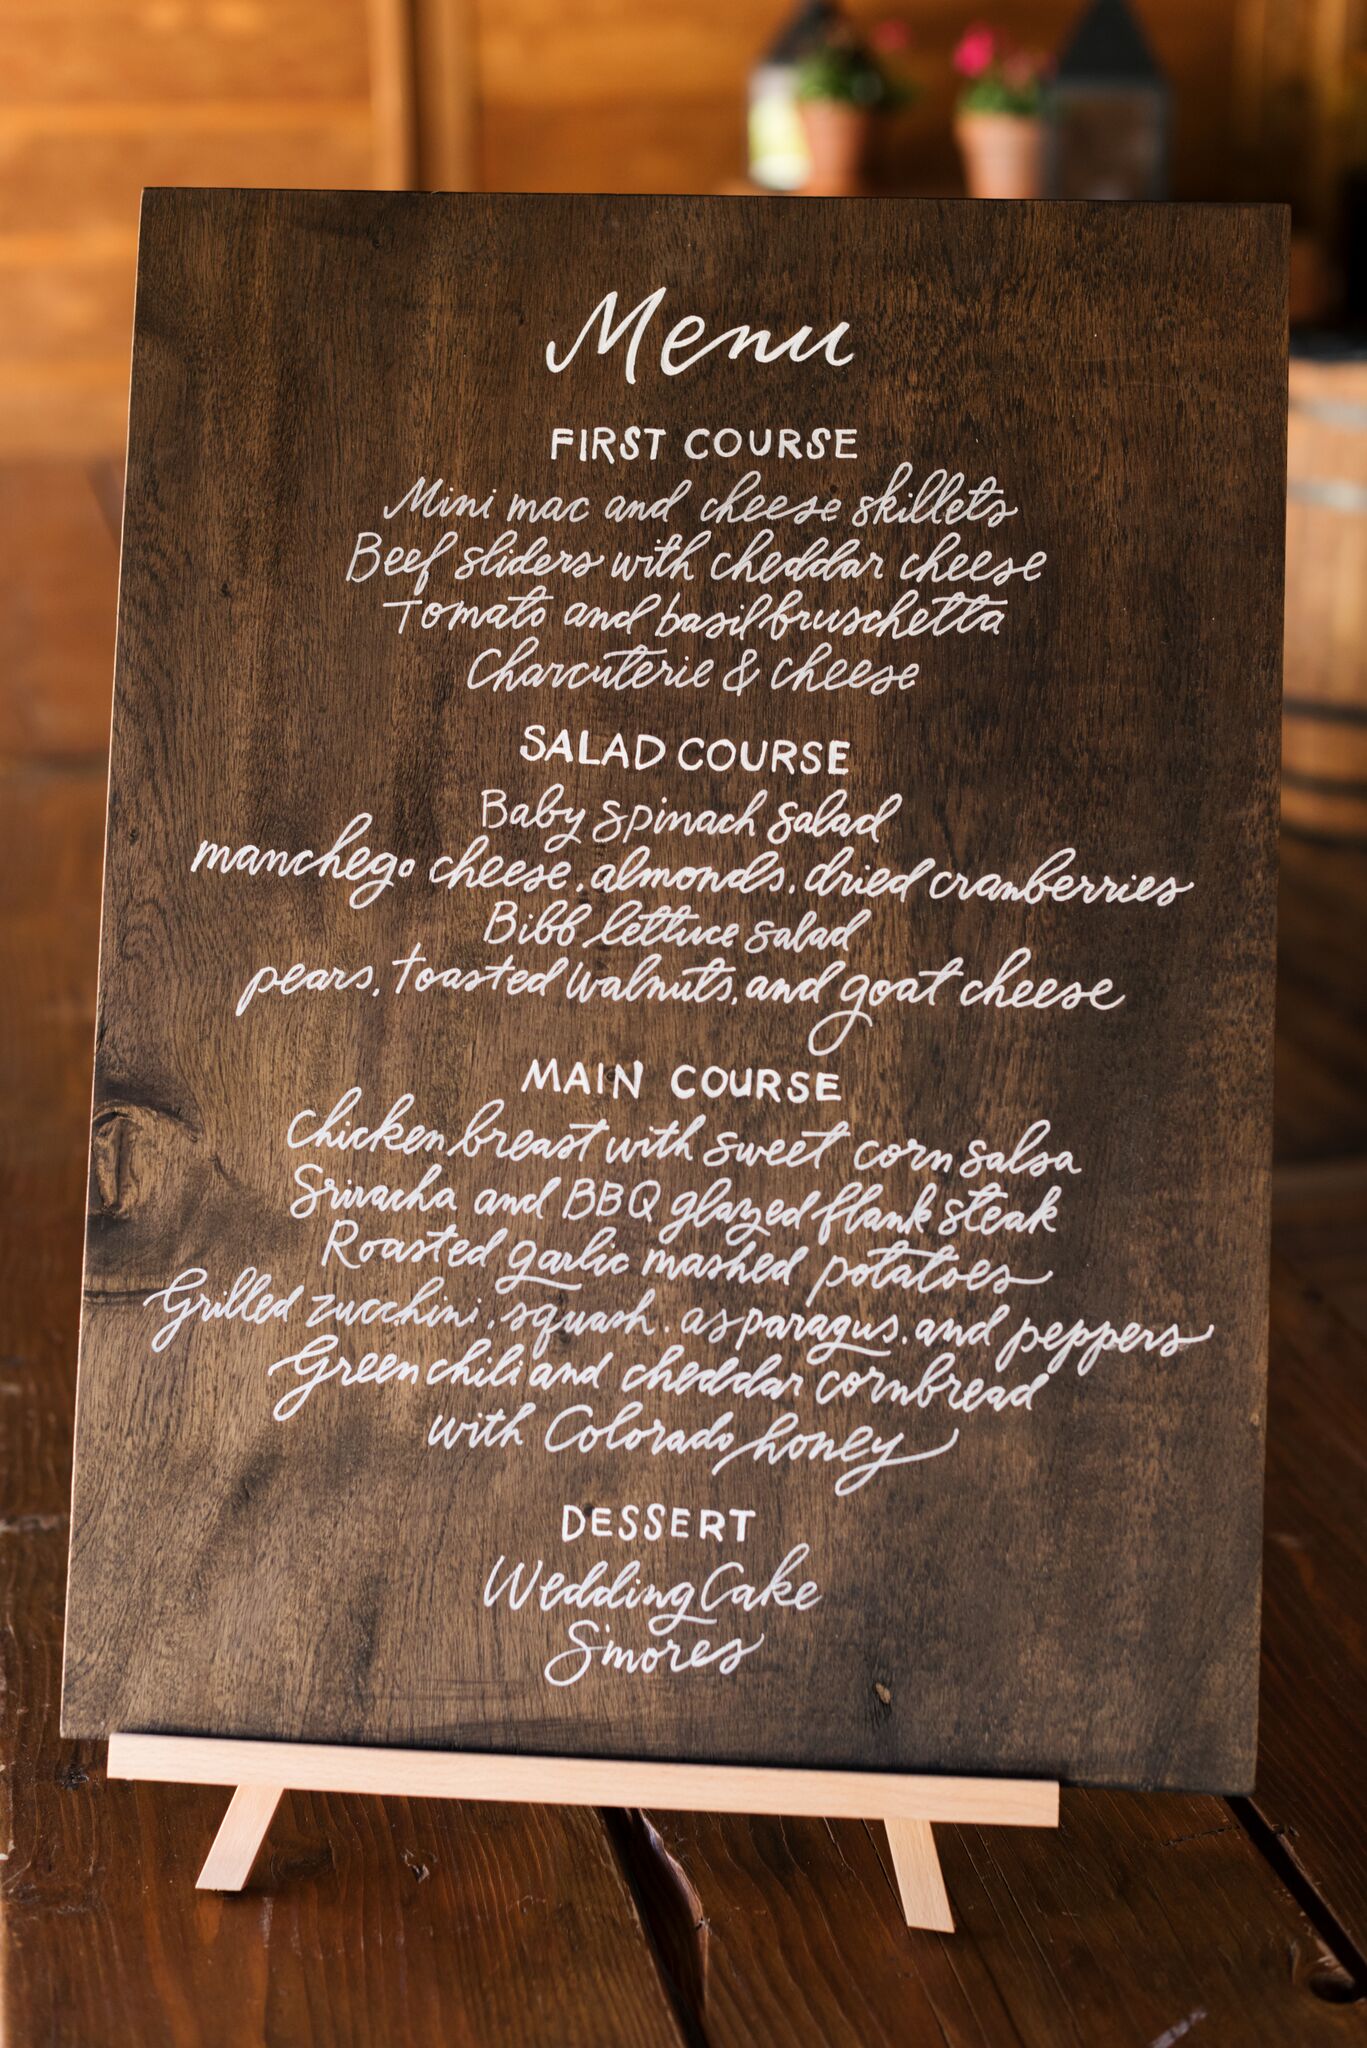 Menu
FIRST COURSE
Mini mac and cheese skillets
Beef sliders with cheddar cheese
Tomato and basil bruschetta
Charcuterie & cheese
SALAD COURSE
Baby spinach salad
manchego cheese, almonds, dried cranberries
Bibb lettuce salad
pears, toasted walnuts, and goat cheese
MAIN COURSE
Chicken breast with sweet corn salsa
Sriracha and BBQ glazed flank steak
Roasted garlic mashed potatoes
Grilled zucchini, squash, asparagus, and peppers
Green chili and cheddar cornbread
with Colorado honey
DESSERT
Wedding Cake
S'mores